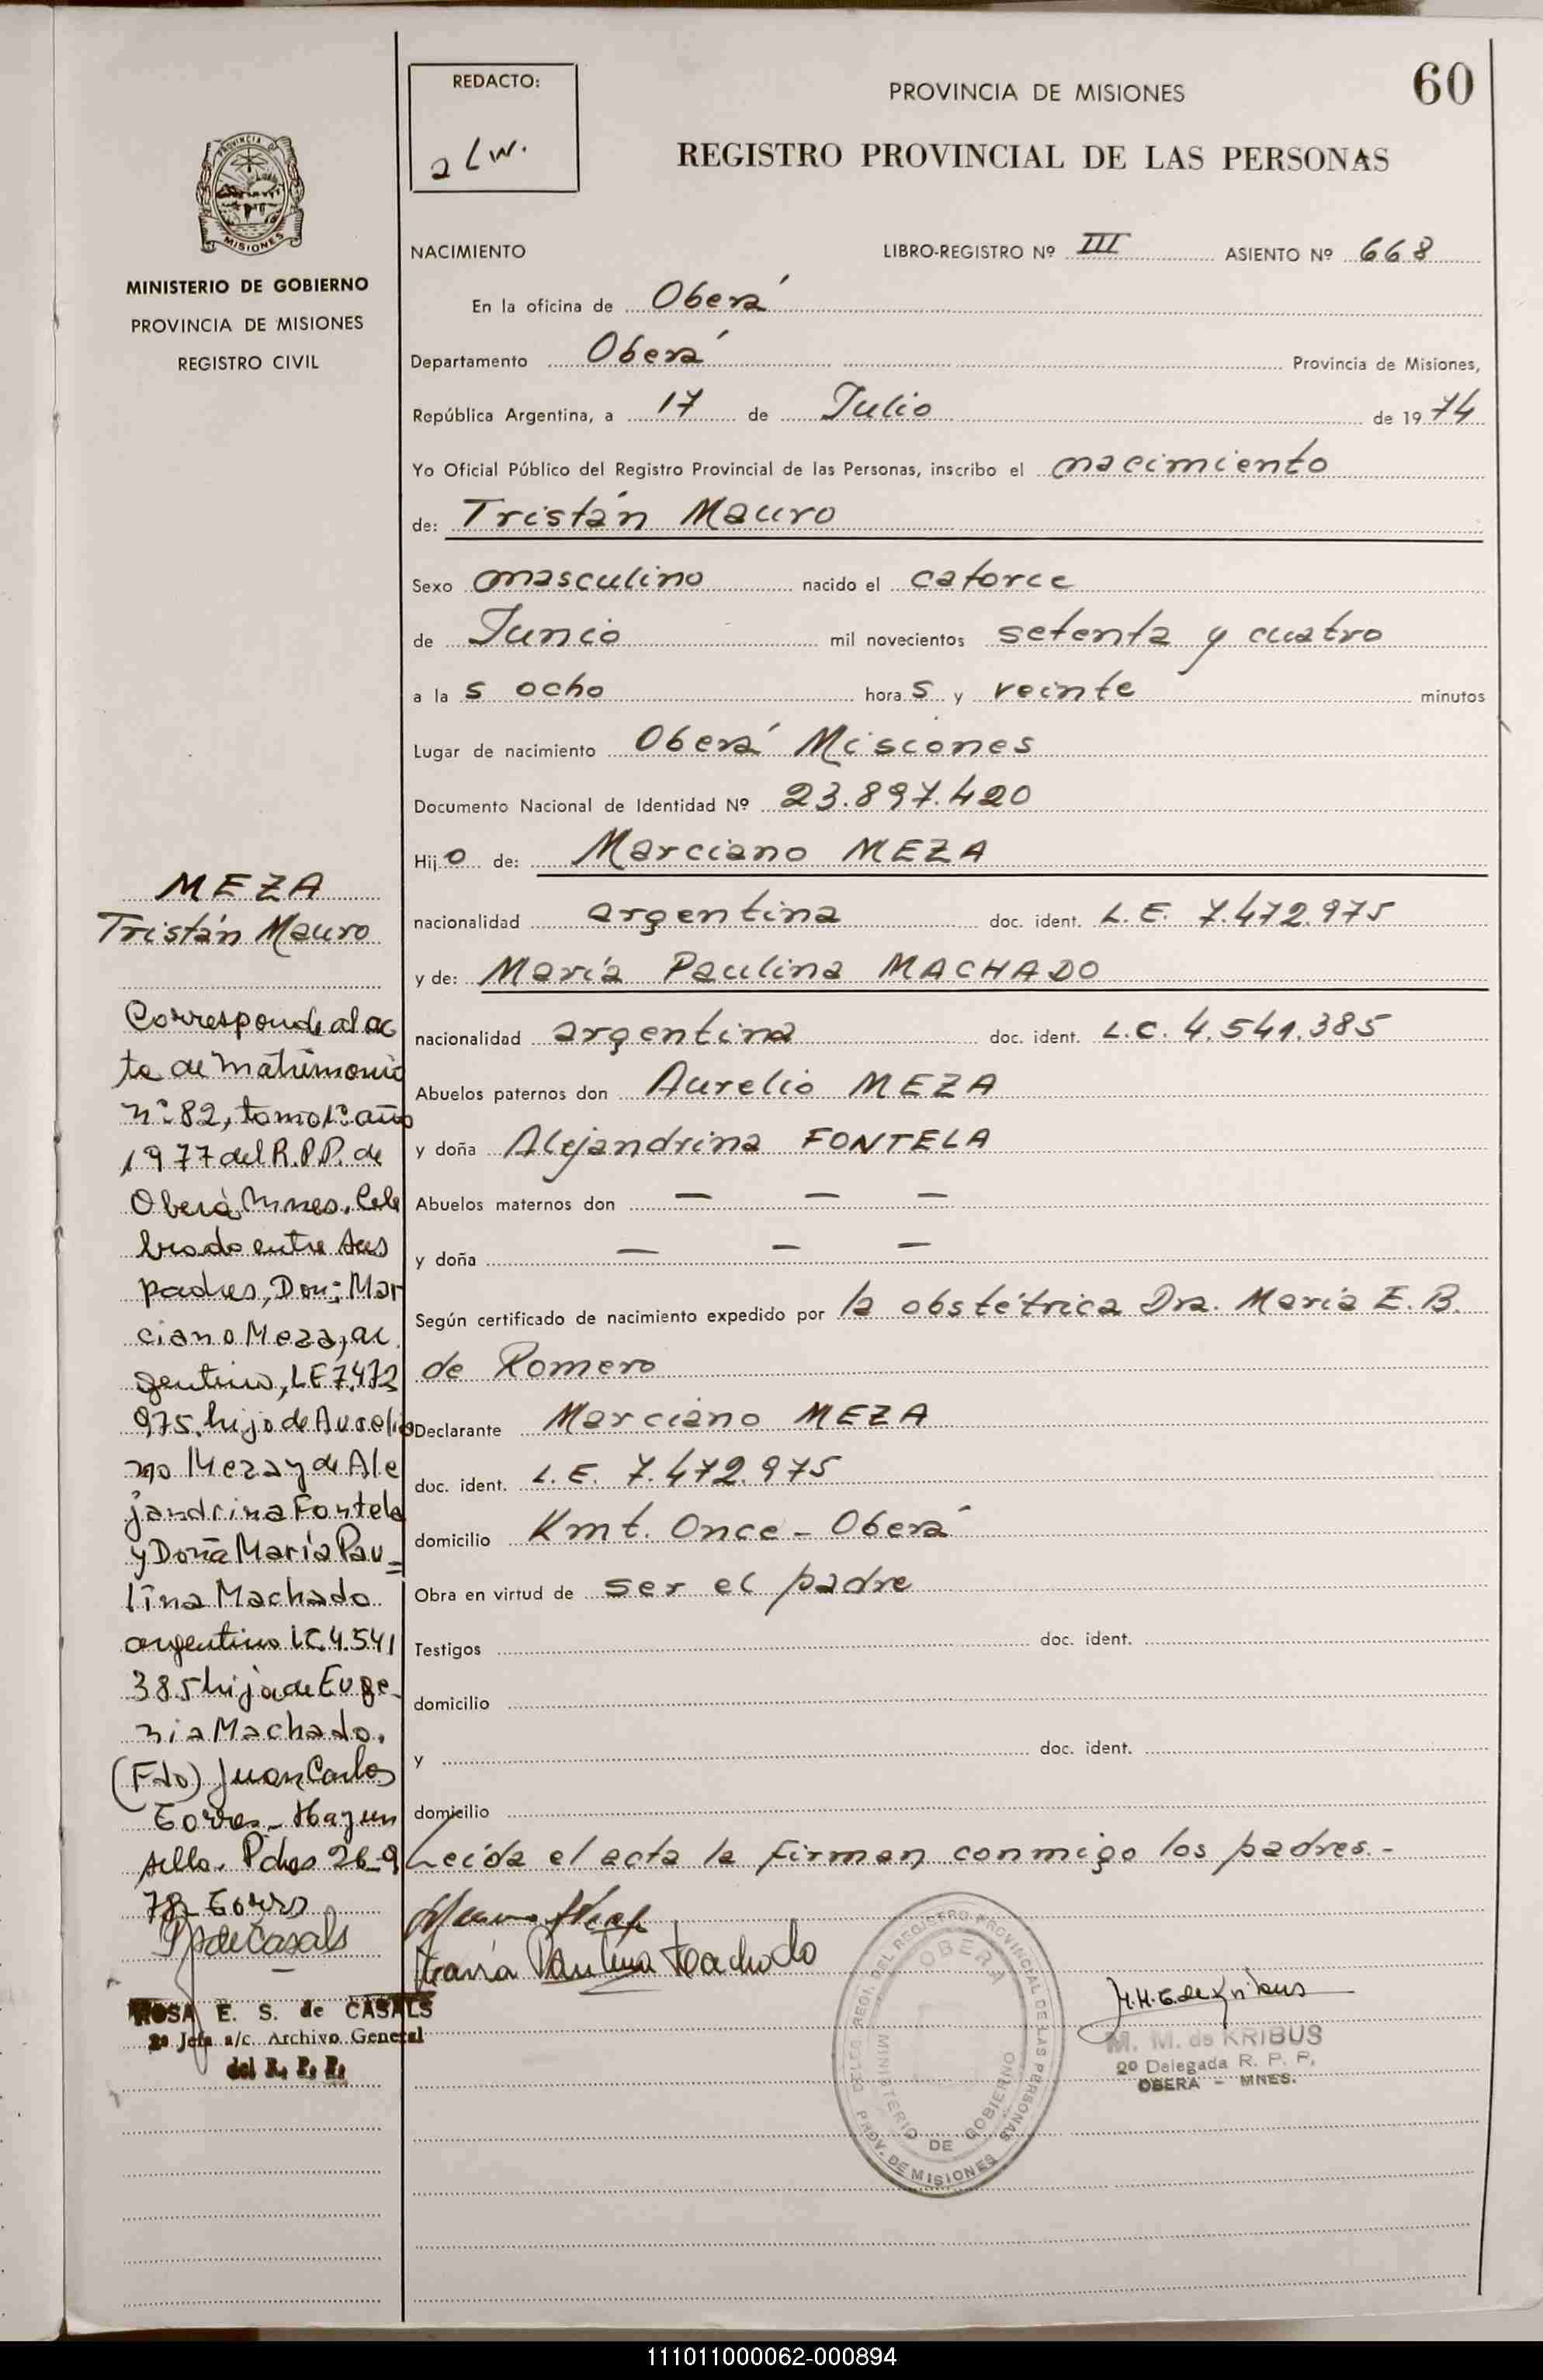 60
REDACTO:
PROVINCIA DE MISIONES
REGISTRO PROVINCIAL DE LAS PERSONAS
PROVINCIA DE
MISIONES
MINISTERIO DE GOBIERNO
PROVINCIA DE MISIONES
REGISTRO CIVIL
NACIMIENTO LIBRO-REGISTRO Nº III ASIENTO Nº 668
En la oficina de Oberá
Departamento Oberá Provincia de Misiones,
República Argentina, a 17 de Julio de 1974
Yo Oficial Público del Registro Provincial de las Personas, inscribo el nacimiento
de: Tristán Mauro
Sexo masculino nacido el catorce
de Junio mil novecientos setenta y cuatro
a las ocho horas y veinte minutos
Lugar de nacimiento Oberá Misiones
Documento Nacional de Identidad Nº 23.897.420
Hijo de: Marciano MEZA
nacionalidad argentina doc. ident. L.E. 7.472.975
y de: María Paulina MACHADO
nacionalidad argentina doc. ident. L.C. 4.541.385
Abuelos paternos don Aurelio MEZA
y doña Alejandrina FONTELA
Abuelos maternos don — — —
y doña — — —
Según certificado de nacimiento expedido por la obstétrica Dra. María E.B.
de Romero
Declarante Marciano MEZA
doc. ident. L.E. 7.472.975
domicilio Kmt. Once - Oberá
Obra en virtud de ser el padre
Testigos doc. ident.
domicilio
y doc. ident.
domicilio
Leída el acta la firman conmigo los padres.-
María Paulina Machado
MEZA
Tristán Mauro
Corresponde al ac
ta de Matrimonio
nº 82, tomo 1º año
1977 del R.P.P. de
Oberá Mnes. Cele
brado entre sus
padres, Don; Mar
ciano Meza, ar
gentino, LE 7.472
975. hijo de Aureli
no Meza y de Ale
jandrina Fontela
y Doña María Pau=
lina Machado
argentina LC. 4.541
385 hija de Euge-
nia Machado.
(Fdo) Juan Carlos
Torres - Hay un
sello. Pdas 26-9
78
R de Casals
ROSA E. S. de CASALS
2º Jefa a/c. Archivo General
del R. P. P.
DELEG. REGI. DEL REGISTRO PROVINCIAL DE LAS PERSONAS
OBERA
MINISTERIO DE GOBIERNO
PROV. DE MISIONES
M. M. de KRIBUS
2º Delegada R. P. P.
OBERA - MNES.
111011000062-000894